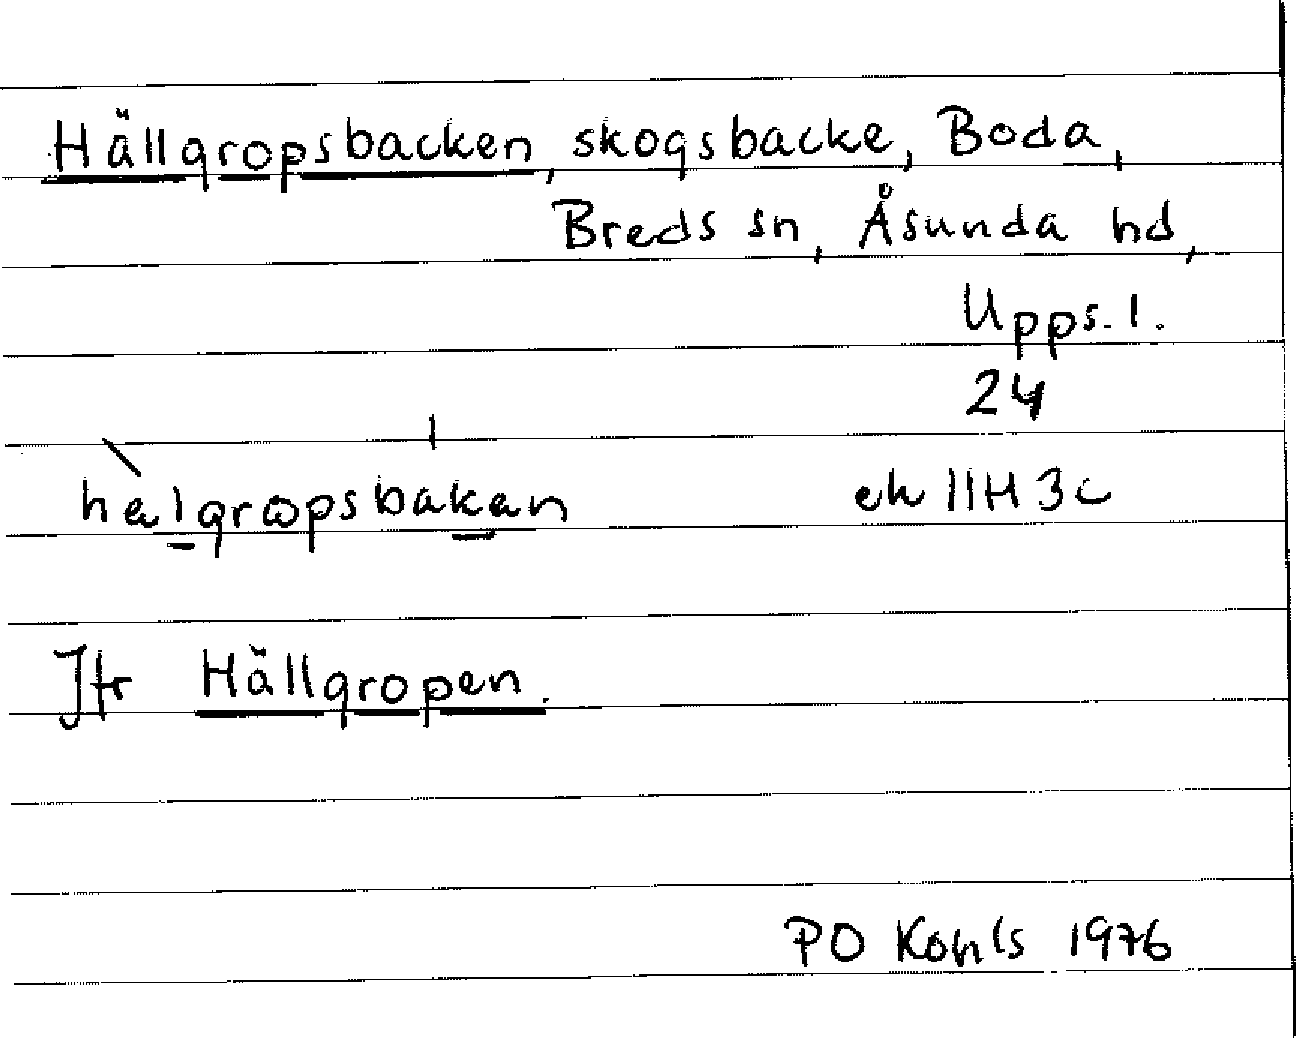 Hällgropsbacken, skogsbacke, Boda,
Breds sn, Åsunda hd,
Upps. l.
24
hälgrωpsbakan ek 11H 3c
Jfr Hällgropen.
PO Kohls 1976